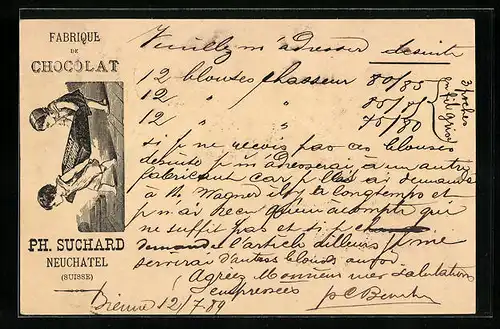 FABRIQUE
DE
CHOCOLAT
PH. SUCHARD
NEUCHATEL
(SUISSE)
Veuillez m'adresser de suite
12 blouses chasseur 80/85
12 " " 85/
12 " " 75/80
3 poches
en fil gris
si je ne reçois pas ces blouses
de suite je m'adresserai à un autre
fabricant car je les ai demandé
à Mr. Wagner il y a longtemps et
je n'ai reçu qu'un acompte qui
ne suffit pas et si je
demande l'article ailleurs je me
servirai d'autres blouses
Agréez Monsieur mes salutations
empressées
Bienne 12/7.89